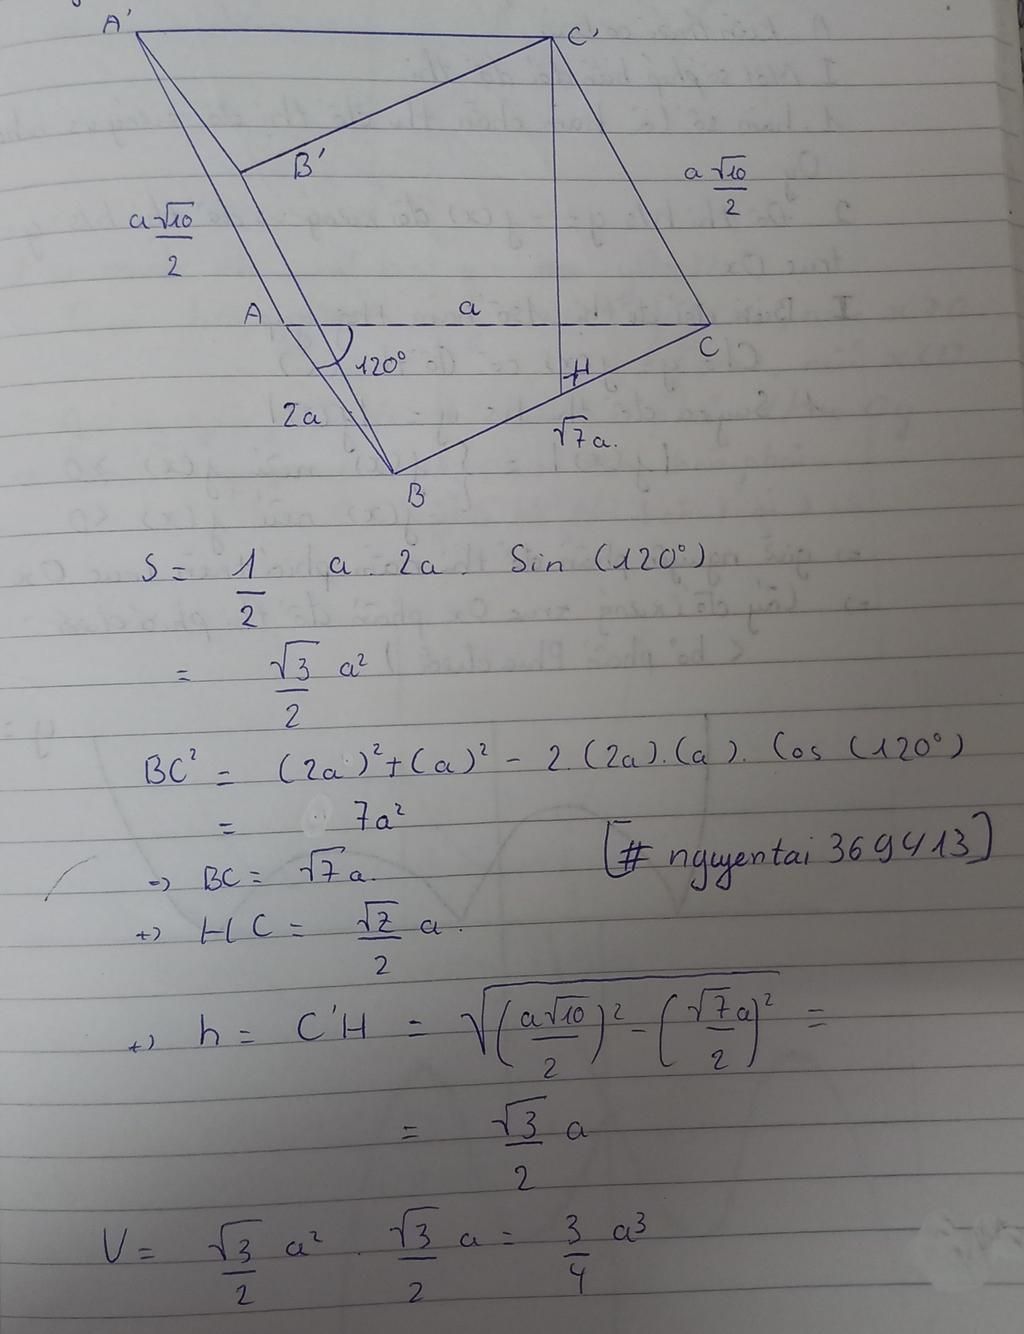 A'
C'
B'
a√10/2
a√10/2
A
a
120°
C
H
2a
√7a.
B
S = 1/2 a . 2a . Sin (120°)
= √3/2 a²
BC² = (2a)² + (a)² - 2.(2a).(a). Cos (120°)
= 7a²
[# nguyentai 369413]
=> BC = √7a.
+> HC = √7/2 a.
+> h = C'H = √((a√10/2)² - (√7a/2)²) =
= √3/2 a
V = √3/2 a² . √3/2 a = 3/4 a³